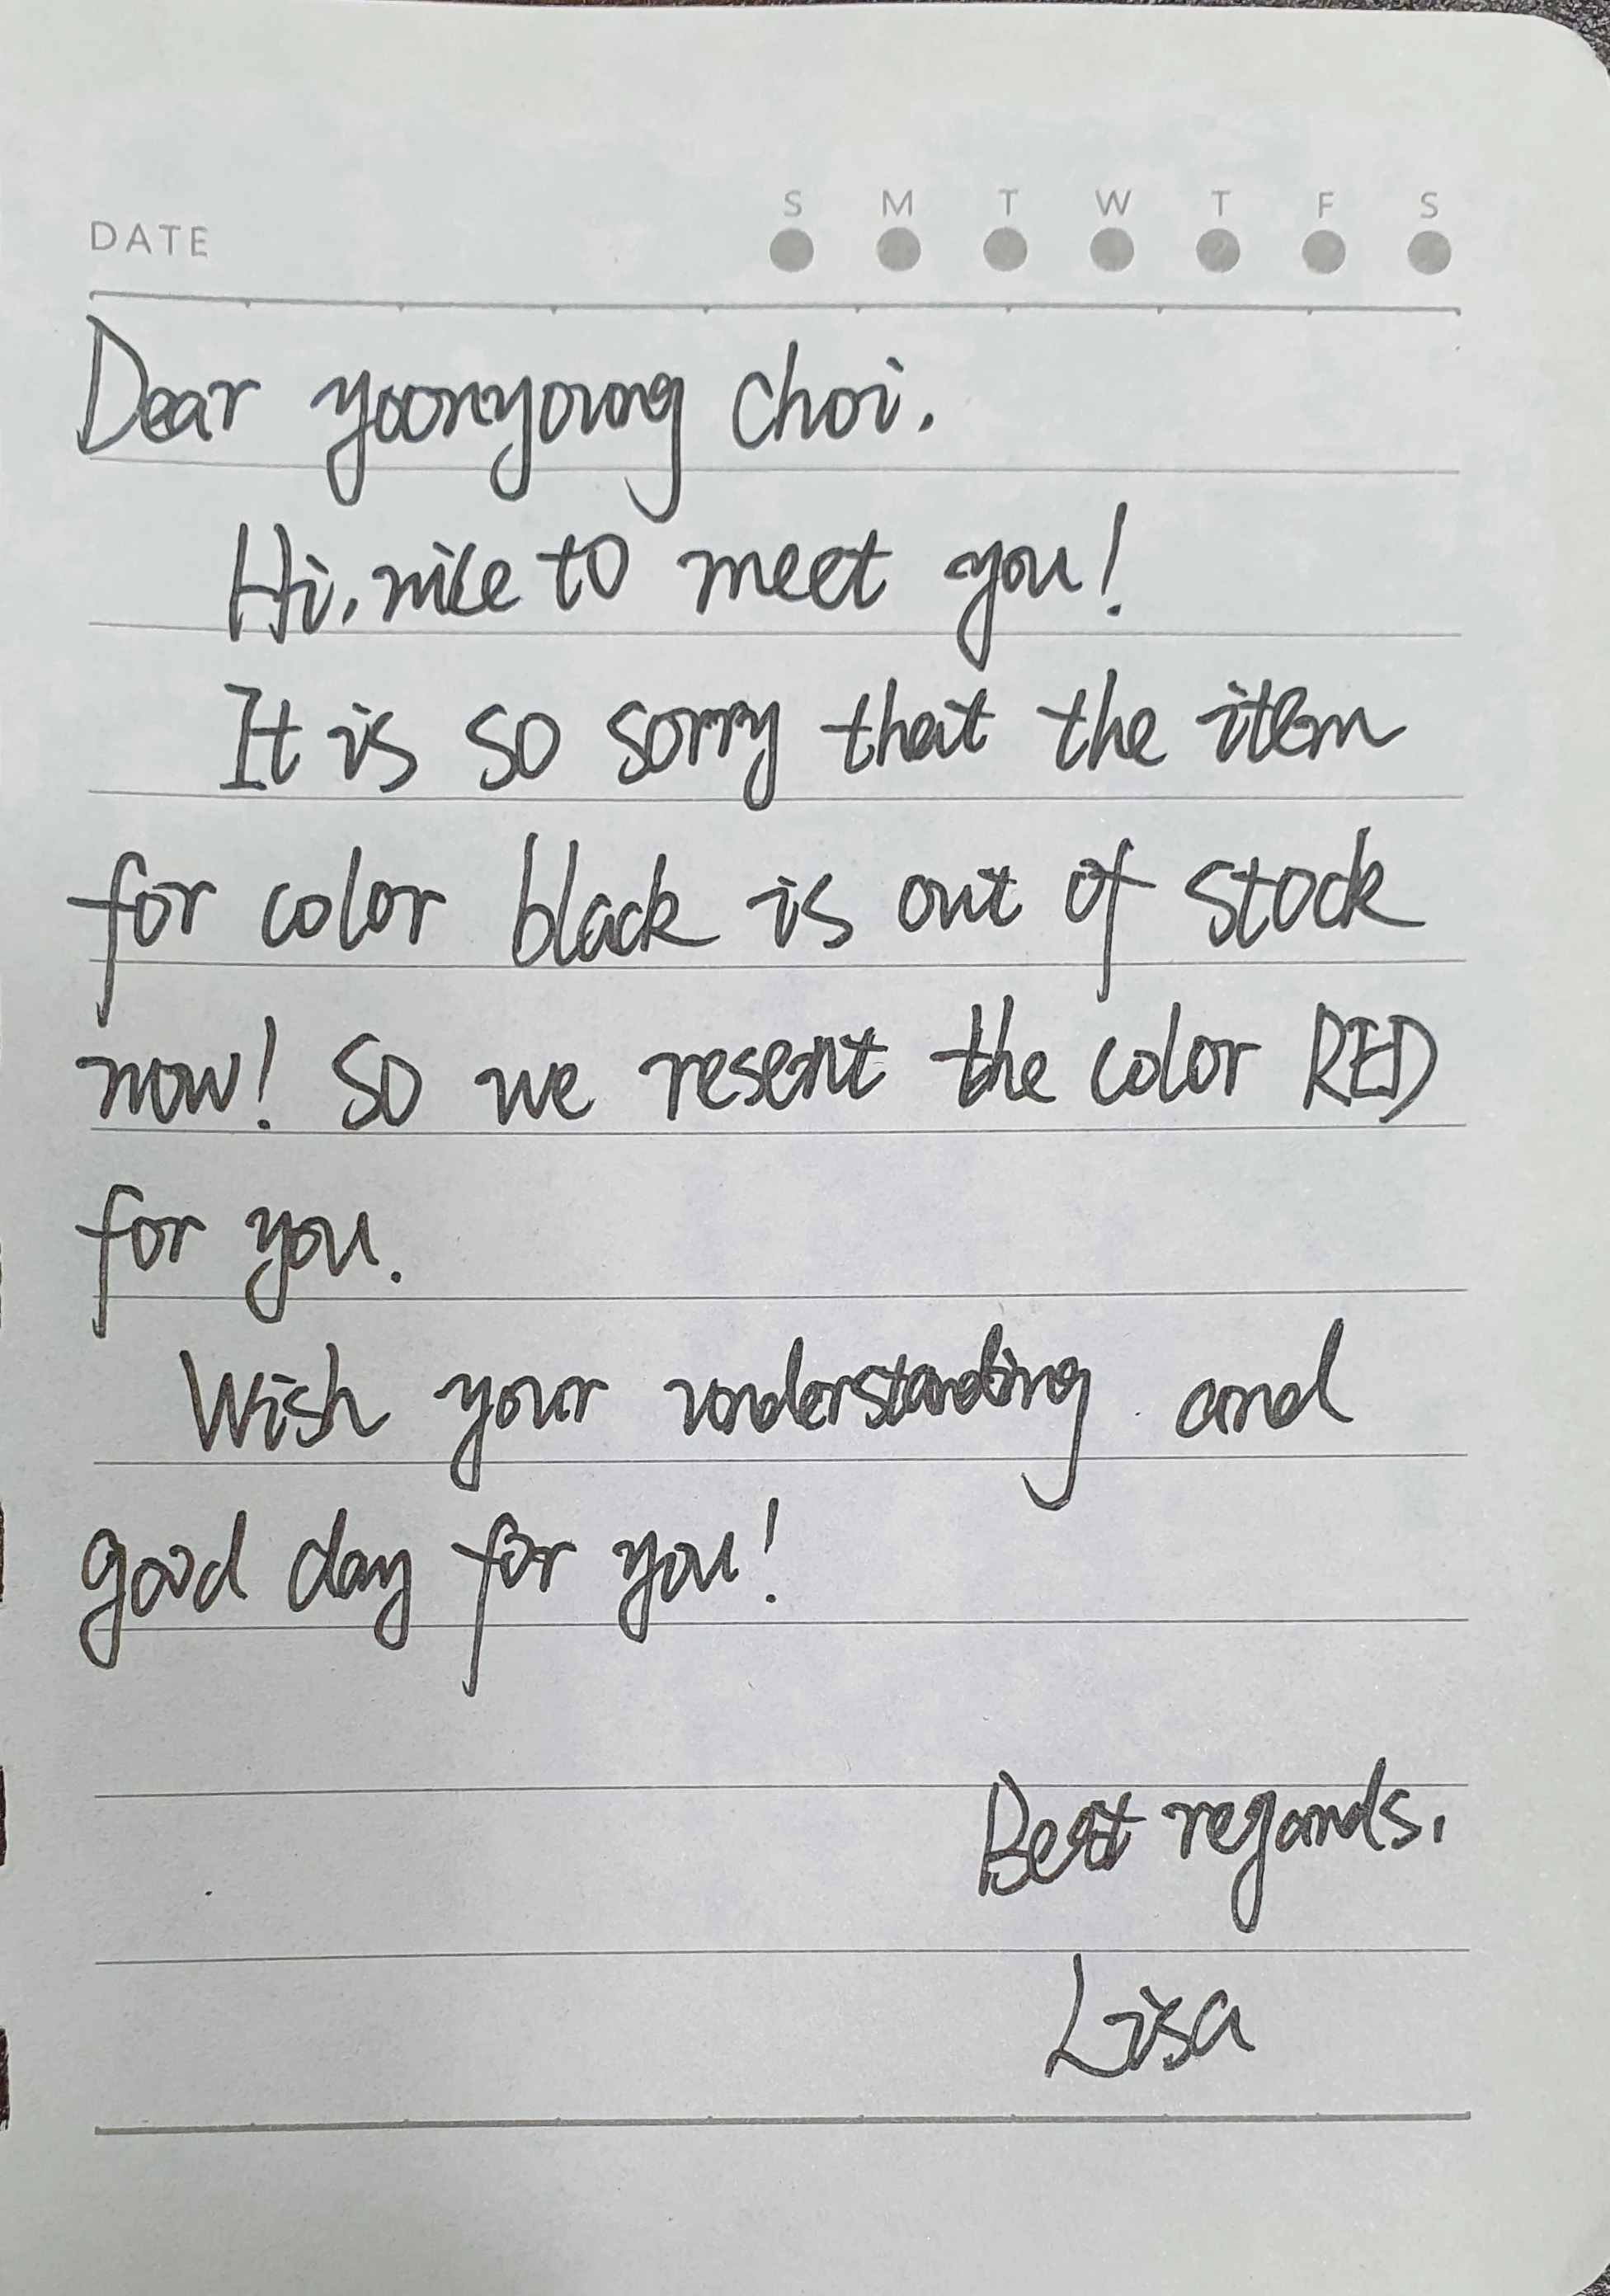 DATE
S M T W T F S
Dear yoonyoung choi.
Hi, nice to meet you!
It is so sorry that the item
for color black is out of stock
now! So we resent the color RED
for you.
Wish your understanding and
good day for you!
Best regards.
Lisa